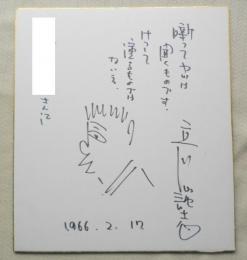 噺ってやつは
聞くものです.
けっして
塗るものでは
ない.
さん江
立川談志
1966.2.17